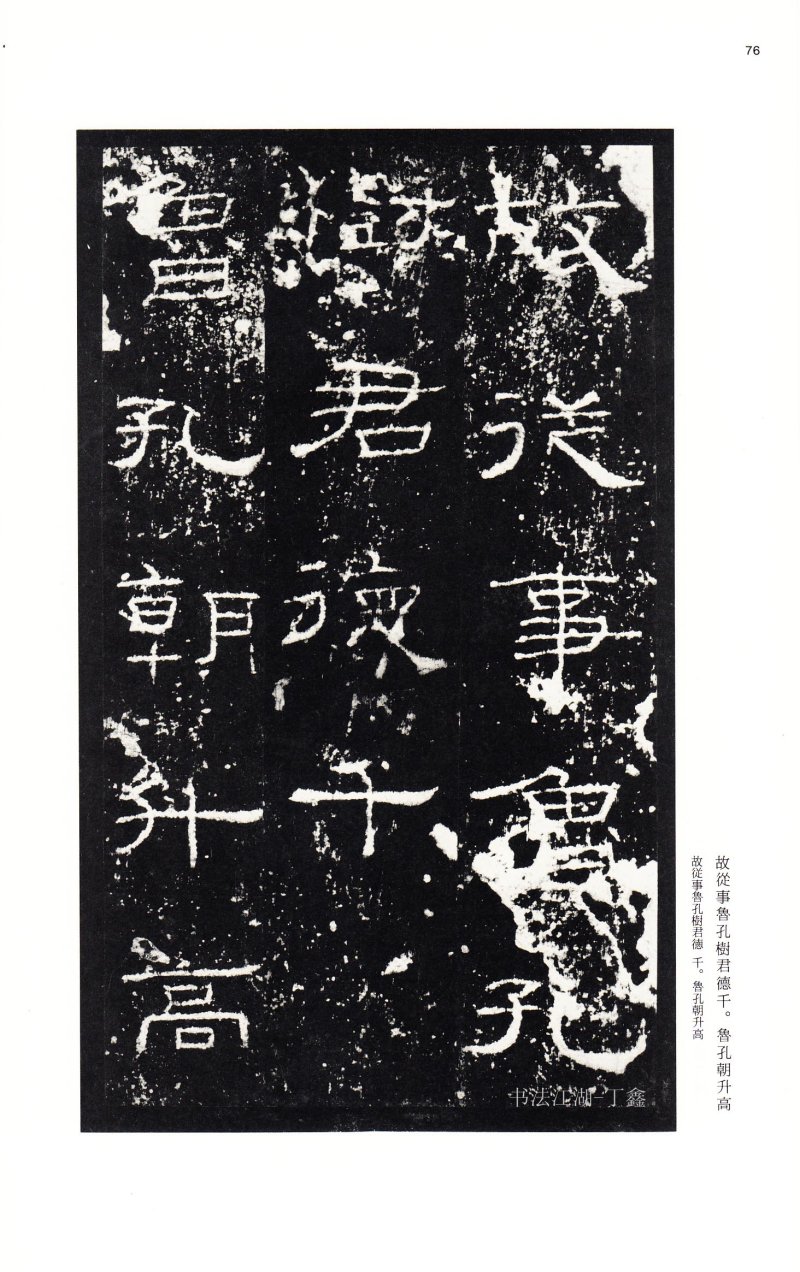 76
故從事魯孔
樹君德千
魯孔朝升高
故從事魯孔樹君德千。魯孔朝升高
故従事魯孔樹君徳 千。魯孔朝升高
书法江湖-丁鑫